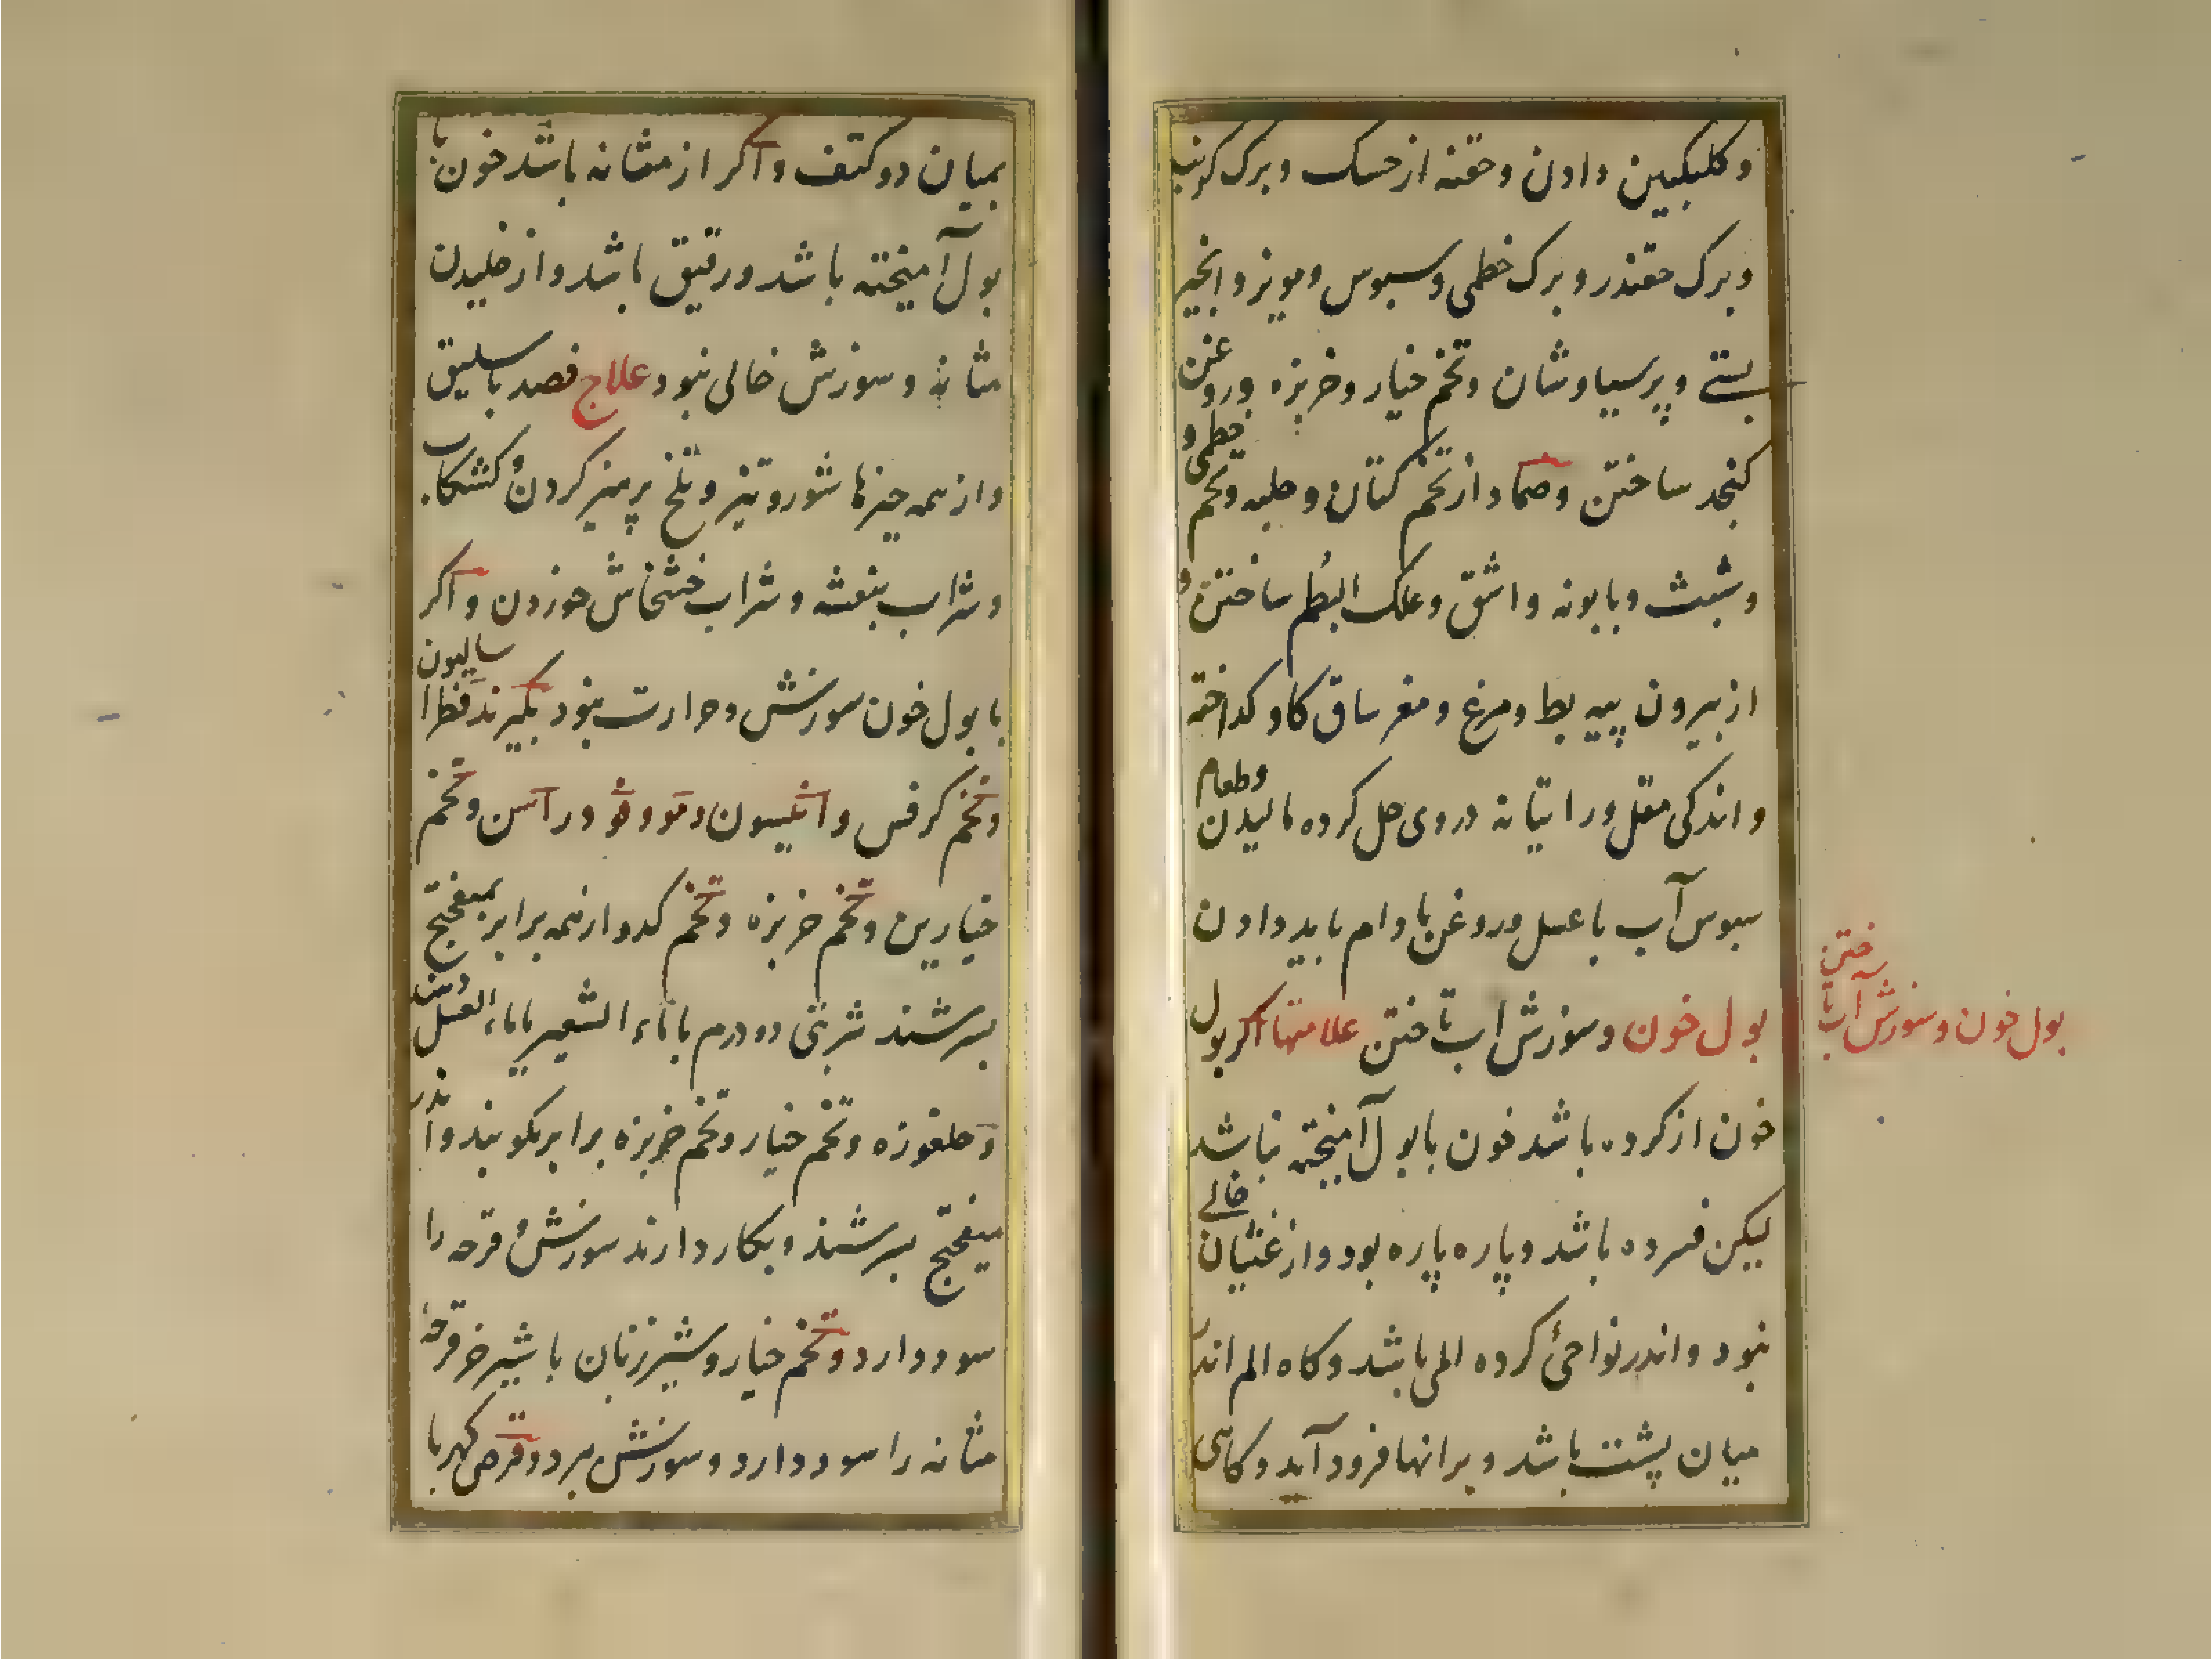 وکلبکبین دادن وحقنه از حسک وبرک کرنب
وبرک حقندر وبرک خطمی وسبوس ومویز وانجیر
بستی وپرسیاوشان وتخم خیار وخربزه وروغن
کنجد ساختن وضماد از تخم کتان وحلبه وتخم خطمی و
وشبث وبابونه واشق وعلک البطم ساختن و
از بیرون پیه بط ومرغ ومغز ساق کاو کداخته
واندکی مقل وراتیانه دروی حل کرده مالیدن وطعام
سبوس آب با عسل وروغن بادام باید دادن
بول خون وسوزش آب تاختن علامتها اکر بول
خون از کرده باشد خون با بول آمیخته نباشد
لیکن فسرده باشد وپاره پاره بود واز غثیان خالی
نبود واندر نواحیٔ کرده المی باشد وکاه الم اندر
میان پشت باشد وبرانها فرود آید وکاهی
بول خون وسوزش آب تاختن
بمیان دو کتف واکر از مثانه باشد خون با
بول آمیخته باشد ورقیق باشد واز خلیدن
مثانه وسوزش خالی نبود علاج فصد باسلیق
واز همه چیزها شور وتیز وتلخ پرهیز کردن وکشکاب
وشراب بنفشه وشراب خشخاش خوردن واکر
با بول خون سوزش وحرارت نبود بکیرند فطراسالیون
وتخم کرفس وانیسون وفو ودو ودر آسن وتخم
خیارین وتخم خربزه وتخم کدو از همه برابر بمیفختج
بسرشند شربتی دو درم با ماء الشعیر یا ماء العسل
وحلغوزه وتخم خیار وتخم خربزه برابر بکوبند واندر
میفختج بسرشند وبکار دارند سوزش وقرحه را
سود دارد وتخم خیار وشیر زنان با شیر خر قرحهٔ
مثانه را سود دارد وسوزش ببرد وقرص کهربا